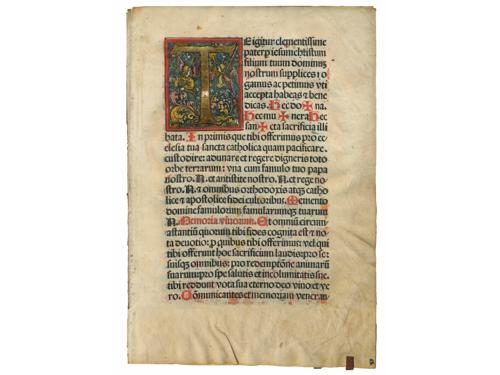 T
E igitur clementissime
pater p iesum christum
filium tuum dominū
nostrum supplices ro
gamus ac petimus vti
accepta habeas & bene
dicas. Hec do ✠ na.
Hec mu ✠ nera Hec
san ✠ cta sacrificia illi
bata. In primis que tibi offerimus pro ec
clesia tua sancta catholica quam pacificare.
custodire: adunare et regere digneris toto
orbe terrarum: vna cum famulo tuo papa
nostro. N. et antistite nostro. N. et rege no
stro. N. & omnibus orthodoxis atqȝ catholi
ce & apostolice fidei cultoribus. Memento
domine famulorum famularumqȝ tuarum
N. Memoria viuorum. Et omniū circum
astantiū quorum tibi fides cognita est & no
ta deuotio: p quibus tibi offerimus: vel qui
tibi offerunt hoc sacrificium laudis pro se:
suisqȝ omnibus: pro redemptōne animarū
suarum: pro spe salutis et incolumitatis sue.
tibi reddunt vota sua eterno deo viuo et ve
ro. Cōmunicantes et memoriam veneran